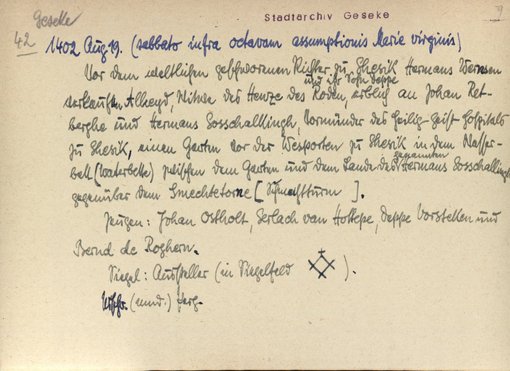 Geseke
Stadtarchiv Geseke
42 1402 Aug 19. (sabbato infra octavam assumptionis Marie virginis)
Vor dem weltlichen geschworenen Richter zu Ghesik Hermans
und ihr Sohn Deppe
verkaufen Alheyd, Witwe des Henze des Roden, erblich an Johan Ret-
berghe und Hermans Sosschallkingh, Vormünder des Heilig-Geist-Hospitals
zu Ghesik, einen Garten vor der Westporten zu Ghesik in dem Wasser-
bett (Waterbette) zwischen dem Garten und dem Lande des Hermans Sosschallkingh
genannten
gegenüber dem Smechtetorne [Schmachtturm].
Zeugen: Johan Ostholt, Gerlach van Hottepe, Deppe Vorstellen und
Bernd de Roghern.
Siegel: Aussteller (in Siegelfeld ).
Urschr. (mnd.) Perg.